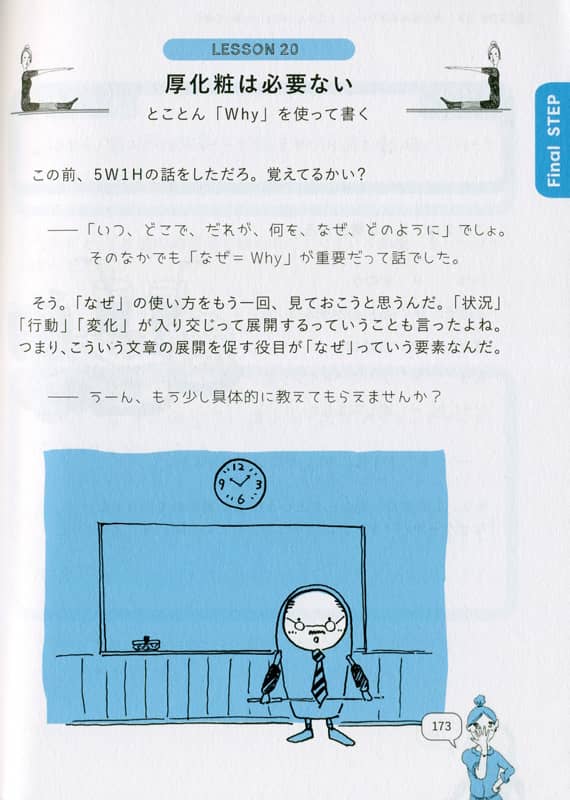 LESSON 20
厚化粧は必要ない
とことん「Why」を使って書く
Final STEP
この前、5W1Hの話をしただろ。覚えてるかい？
──「いつ、どこで、だれが、何を、なぜ、どのように」でしょ。
そのなかでも「なぜ＝Why」が重要だって話でした。
そう。「なぜ」の使い方をもう一回、見ておこうと思うんだ。「状況」
「行動」「変化」が入り交じって展開するっていうことも言ったよね。
つまり、こういう文章の展開を促す役目が「なぜ」っていう要素なんだ。
── うーん、もう少し具体的に教えてもらえませんか？
12
9 3
6
173